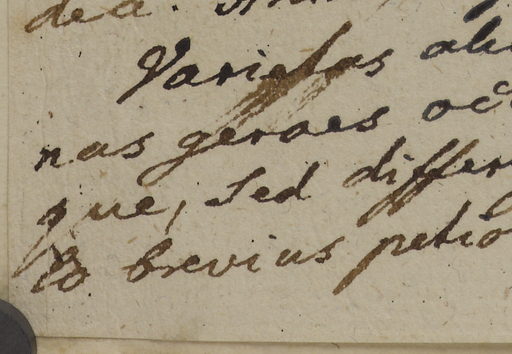 dea.
Varietas
nas geraes
que, sed differ
& brevius petio